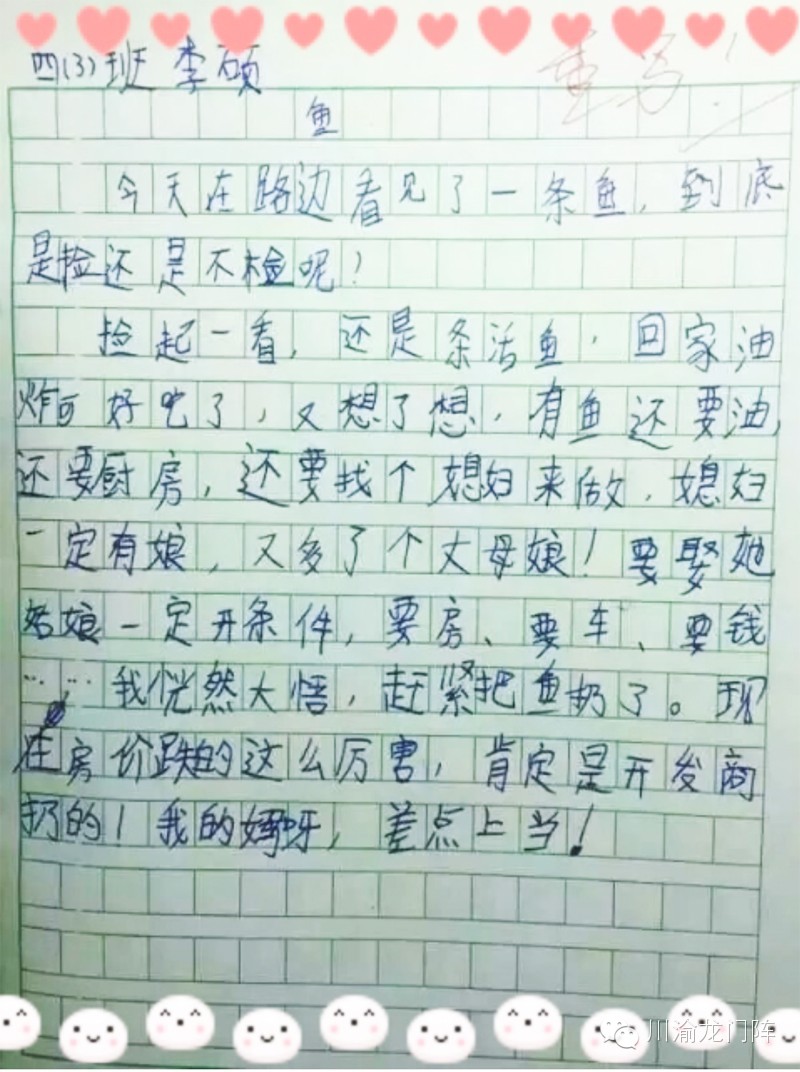 四(3)班 李硕
重写！
鱼
今天在路边看见了一条鱼，到底
是捡还是不检呢！
捡起一看，还是条活鱼，回家油
炸可好吃了，又想了想，有鱼还要油，
还要厨房，还要找个媳妇来做，媳妇
一定有娘，又多了个丈母娘！要娶她
姑娘一定开条件，要房、要车、要钱
……我恍然大悟，赶紧把鱼扔了。现
在房价跌的这么厉害，肯定是开发商
扔的！我的妈呀，差点上当！
川渝龙门阵